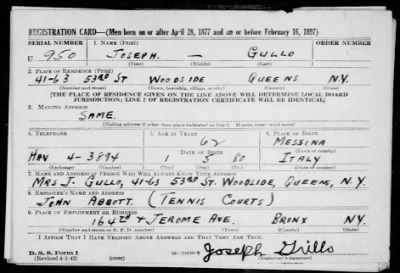 REGISTRATION CARD—(Men born on or after April 28, 1877 and on or before February 16, 1897)
SERIAL NUMBER 1. NAME (Print)
U 950 JOSEPH. — GULLO
(First) (Middle) (Last)
2. PLACE OF RESIDENCE (Print)
41-63 53RD ST WOODSIDE QUEENS N.Y.
(Number and street) (Town, township, village, or city) (County) (State)
[THE PLACE OF RESIDENCE GIVEN ON THE LINE ABOVE WILL DETERMINE LOCAL BOARD
JURISDICTION; LINE 2 OF REGISTRATION CERTIFICATE WILL BE IDENTICAL]
3. MAILING ADDRESS
SAME.
4. TELEPHONE 5. AGE IN YEARS 6. PLACE OF BIRTH
62 MESSINA
DATE OF BIRTH
HAV 4-3894 1 5 80 ITALY
(Exchange) (Number) (Mo.) (Day) (Yr.) (State or country)
7. NAME AND ADDRESS OF PERSON WHO WILL ALWAYS KNOW YOUR ADDRESS
MRS J. GULLO, 41-63 53RD ST. WOODSIDE, QUEENS, N.Y.
8. EMPLOYER'S NAME AND ADDRESS
JOHN ABBOTT. (TENNIS COURTS)
9. PLACE OF EMPLOYMENT OR BUSINESS
164TH + JEROME AVE. BRONX N.Y.
(Number and street or R. F. D. number) (Town) (County) (State)
I AFFIRM THAT I HAVE VERIFIED ABOVE ANSWERS AND THAT THEY ARE TRUE.
D. S. S. Form 1
(Revised 4-1-42) Joseph Gullo